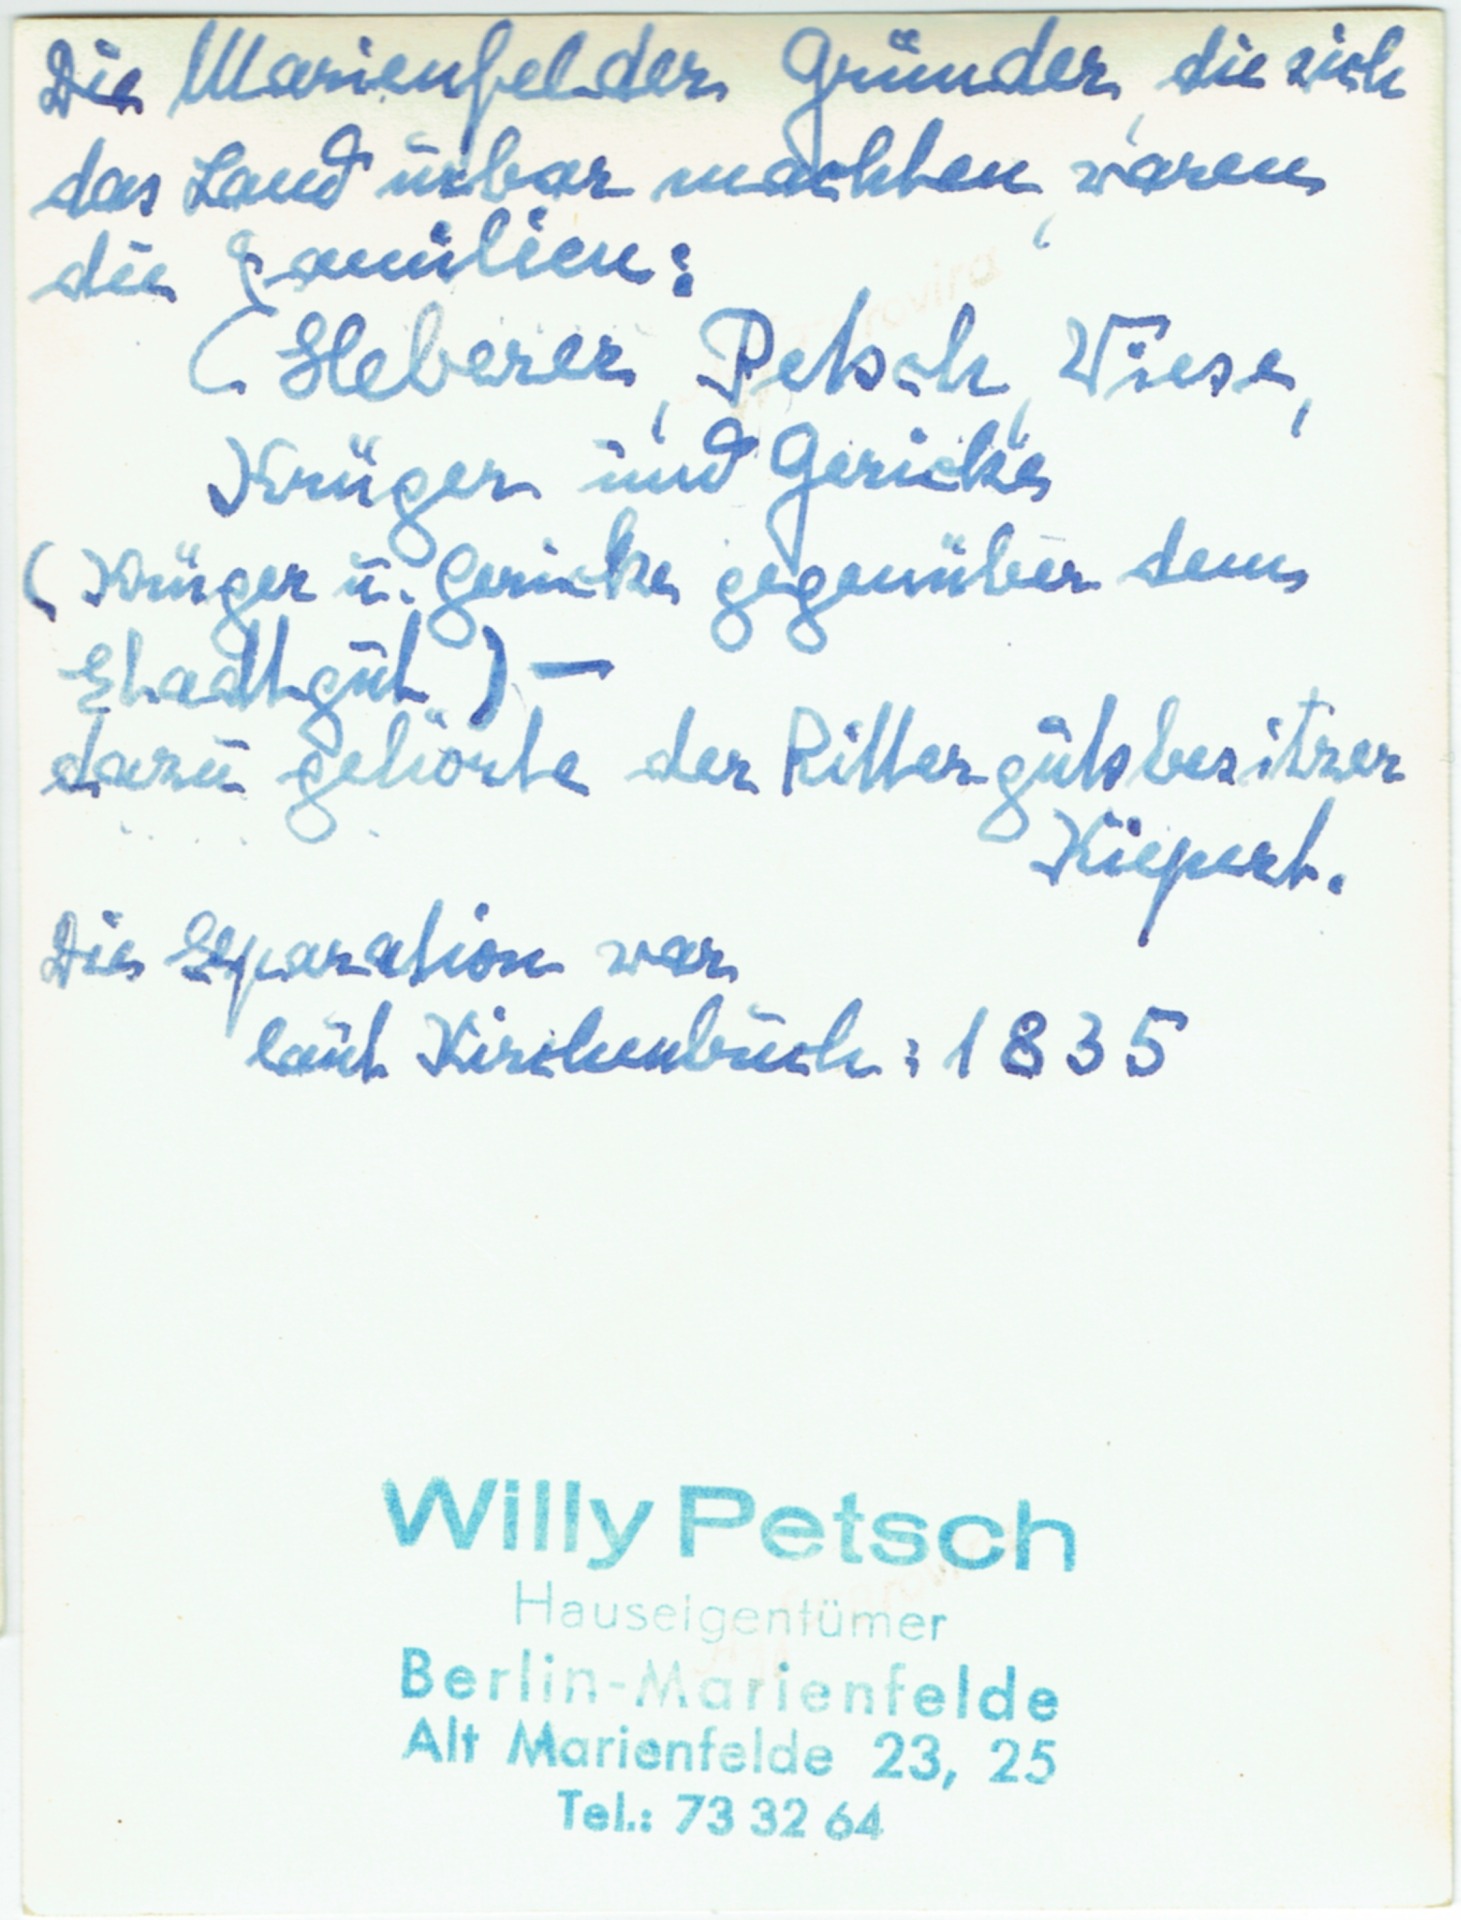 Die Marienfelder Gründer, die sich
das Land urbar machten, waren
die Familien:
( Heberer, Petsch, Wiese,
Krüger und Gericke
( Krüger u. Gericke gegenüber dem
Stadtgut ) —
dazu gehörte der Rittergutsbesitzer
Kiepert.
Die Separation war
laut Kirchenbuch : 1835
Willy Petsch
Hauseigentümer
Berlin-Marienfelde
Alt Marienfelde 23, 25
Tel.: 73 32 64